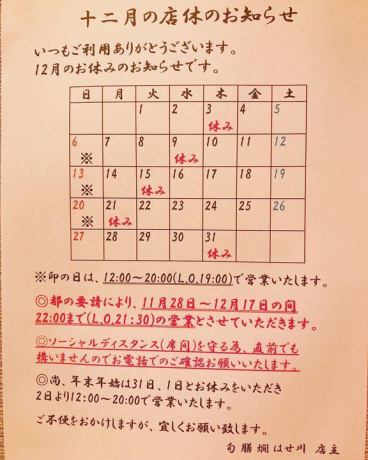 十二月の店休のお知らせ
いつもご利用ありがとうございます。
12月のお休みのお知らせです。
日 月 火 水 木 金 土
1 2 3 4 5
休み
6 7 8 9 10 11 12
※ 休み
13 14 15 16 17 18 19
※ 休み
20 21 22 23 24 25 26
※ 休み
27 28 29 30 31
休み
※卯の日は、12:00～20:00(L,O,19:00)で営業いたします。
◎都の要請により、11月28日～12月17日の間
22:00まで(L,O,21:30)の営業とさせていただきます。
◎ソーシャルディスタンス(席間)を守る為、直前でも
構いませんのでお電話でのご確認お願いいたします。
◎尚、年末年始は31日、1日とお休みをいただき
2日より12:00～20:00で営業致します。
ご不便をおかけしますが、宜しくお願い致します。
旬膳 燗 はせ川 店主